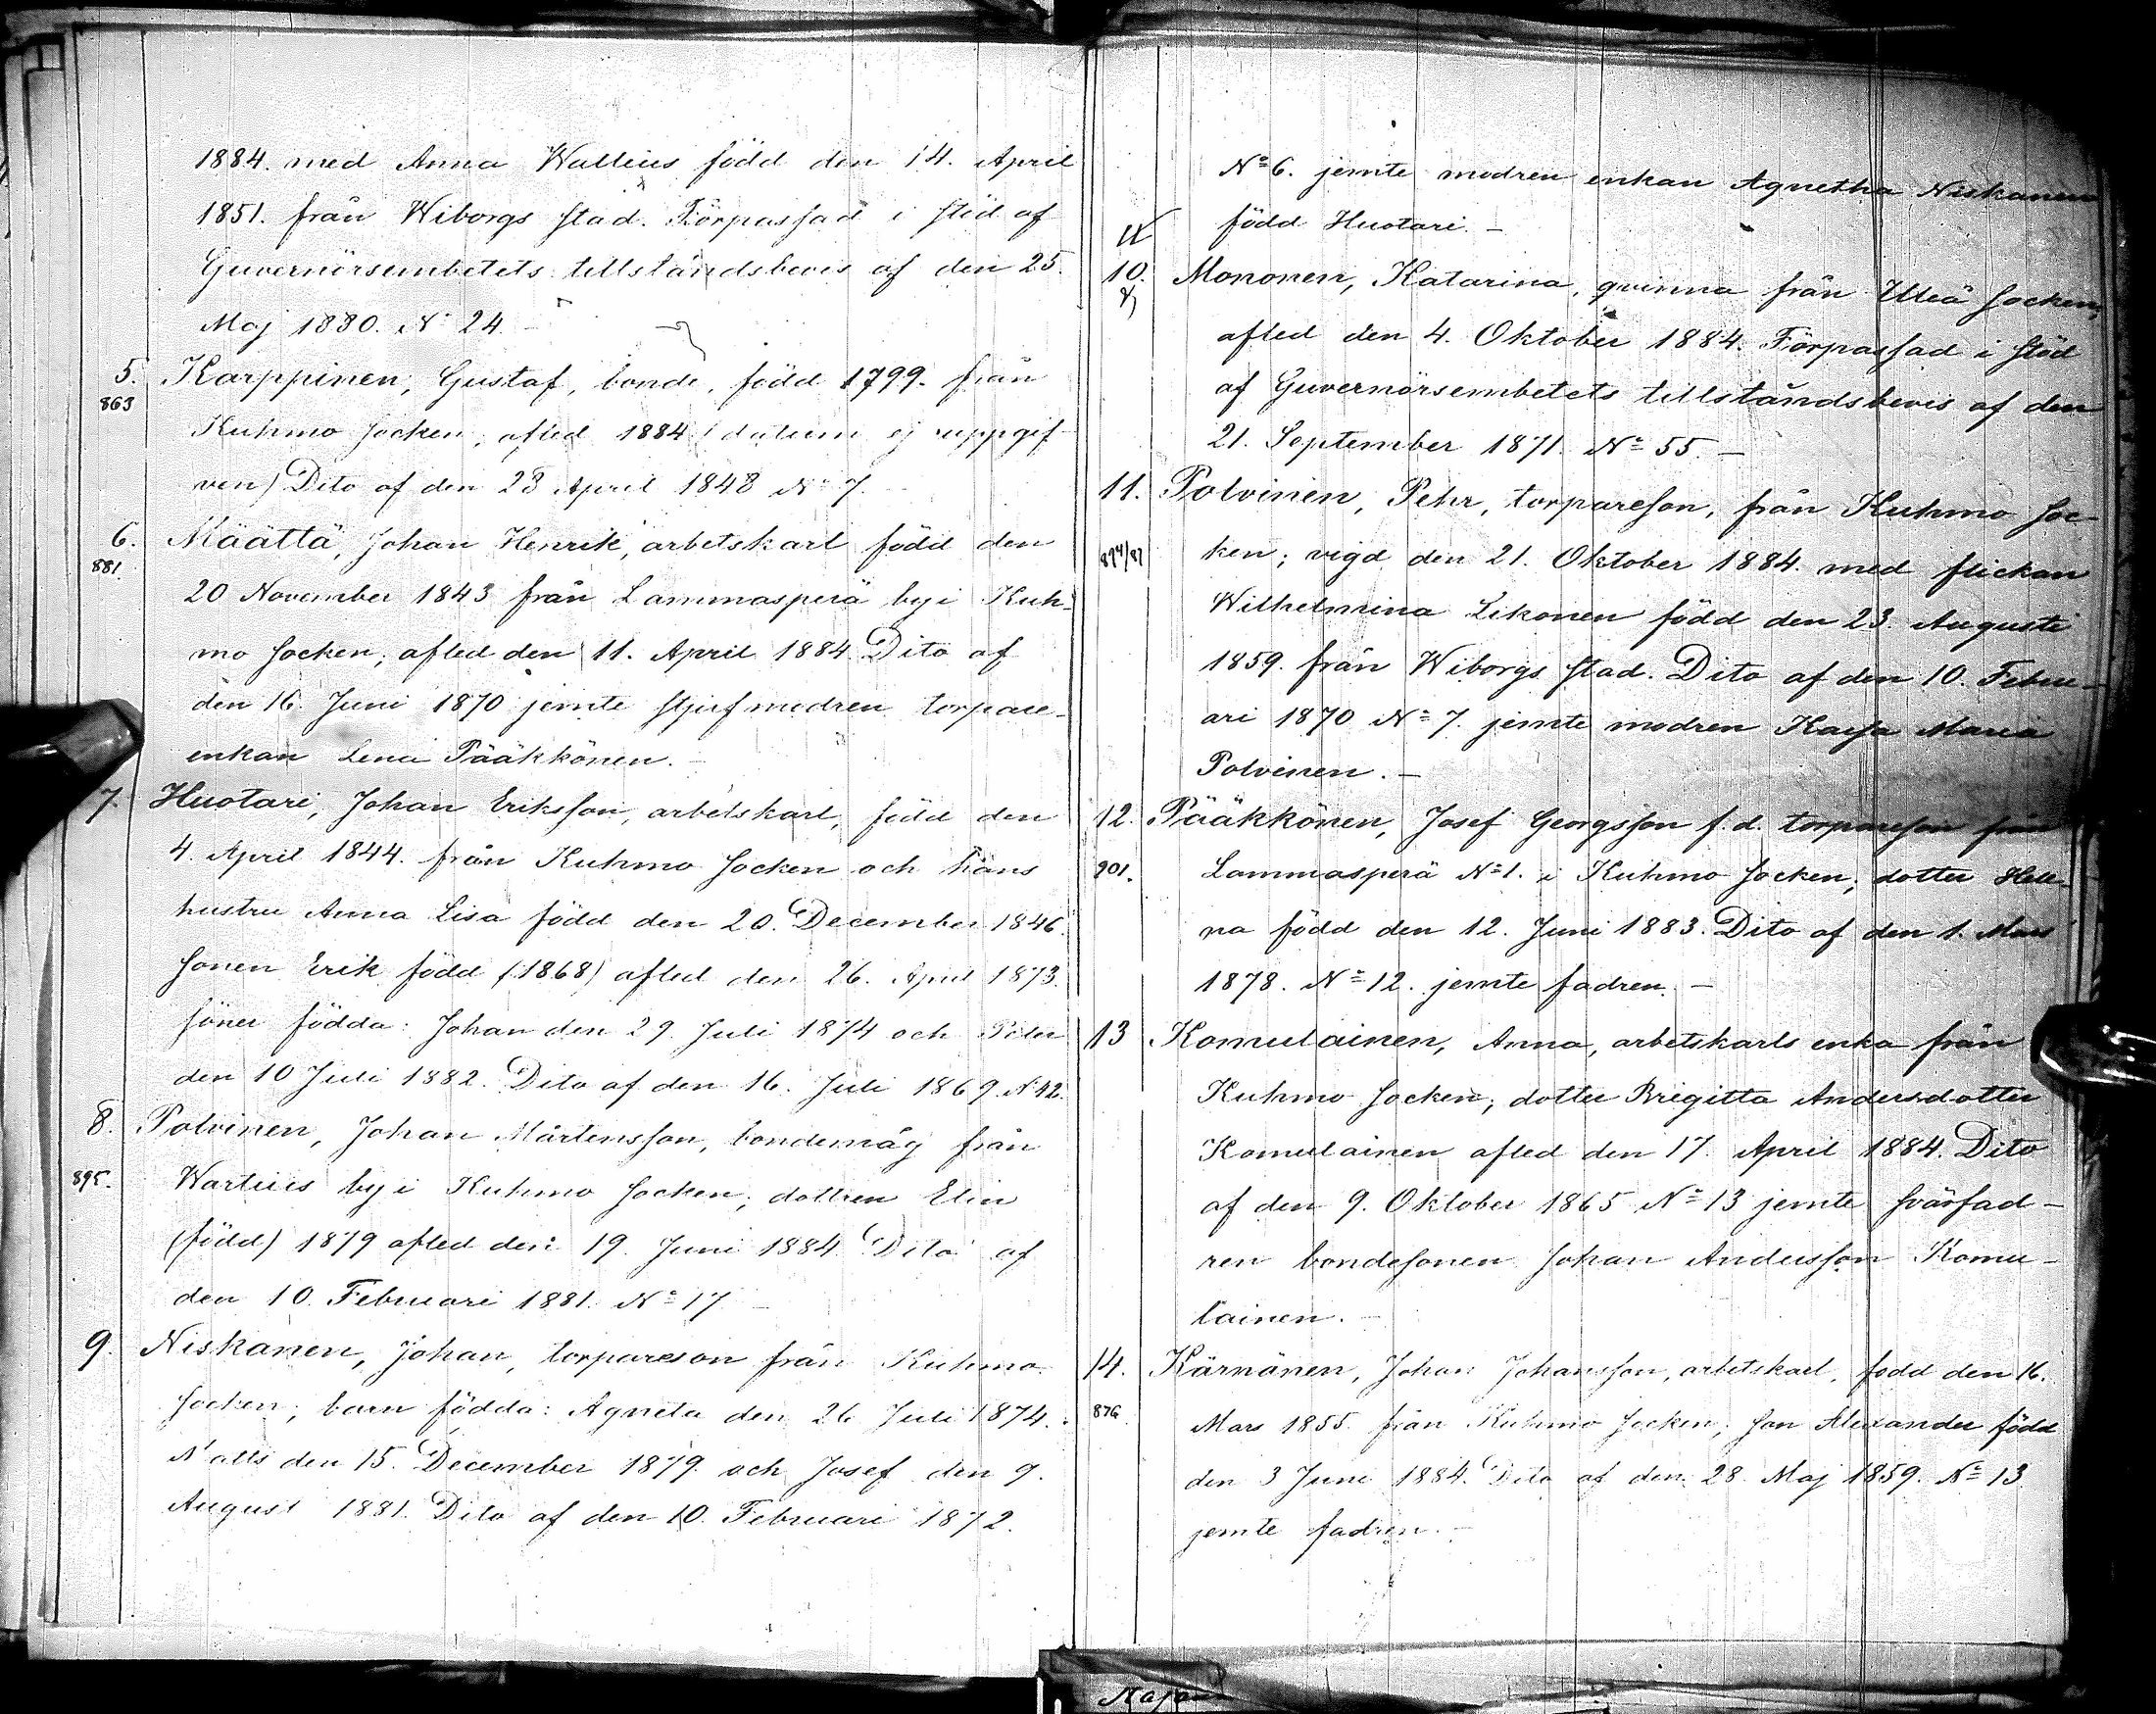 1884. med Anna Wallius född den 14. April
1851. från Wiborgs stad. Förpassad i stöd af
Guvernörsembetets tillståndsbevis af den 25.
Maj 1880. No 24. –
5. Karppinen, Gustaf, bonde, född 1799. från
863
Kuhmo socken, afled 1884 (datum ej uppgif-
ven) Dito af den 28 April 1848 No 7. –
6. Määttä, Johan Henrik, arbetskarl född den
881.
20 November 1843 från Lammasperä by i Kuh-
mo socken; afled den 11. April 1884 Dito af
den 16. Juni 1870 jemte stjufmodren torpare-
enkan Lena Pääkkönen. –
7. Huotari, Johan Eriksson, arbetskarl, född den
4. April 1844. från Kuhmo socken och hans
hustru Anna Lisa född den 20. December 1846.
sonen Erik född (1868) afled den 26. April 1873.
söner födda: Johan den 29. Juli 1874 och Peter
den 10 Juli 1882. Dito af den 16. Juli 1869. No 42.
8. Polvinen, Johan Mårtensson, bondemåg från
895.
Wartius by i Kuhmo socken; dottren Elin
(född) 1879 afled den 19. Juni 1884 Dito af
den 10. Februari 1881. No 17 –
9. Niskanen, Johan, torpareson från Kuhmo
socken; barn födda: Agneta den 26 Juli 1874.
Matts den 15. December 1879. och Josef den 9.
August 1881. Dito af den 10. Februari 1872.
No 6. jemte modren enkan Agnetha Niskanen
född Huotari. –
10. Mononen, Katarina, qvinna från Uleå socken,
afled den 4. Oktober 1884. Förpassad i stöd
af Guvernörsembetets tillståndsbevis af den
21. September 1871. No 55. –
11. Polvinen, Pehr, torpareson, från Kuhmo soc-
894/87
ken; vigd den 21. Oktober 1884. med flickan
Wilhelmina Likonen född den 23. Augusti
1859. från Wiborgs stad. Dito af den 10. Febru-
ari 1870 No 7. jemte modren Kajsa Maria
Polvinen. –
12. Pääkkönen, Josef Georgsson f. d. torpareson från
901.
Lammasperä No 1. i Kuhmo socken; dotter Hele-
na född den 12. Juni 1883. Dito af den 1. Mars
1878. No 12. jemte fadren. –
13 Komulainen, Anna, arbetskarls enka från
Kuhmo socken; dotter Brigitta Andersdotter
Komulainen afled den 17. April 1884. Dito
af den 9. Oktober 1865 No 13 jemte svärfad-
ren bondesonen Johan Andersson Komu-
lainen. –
14. Kärnänen, Johan Johansson, arbetskarl, född den 16.
876
Mars 1855. från Kuhmo socken; son Alexander född
den 3 Juni 1884. Dito af den 28 Maj 1859. No 13.
jemte fadren. –